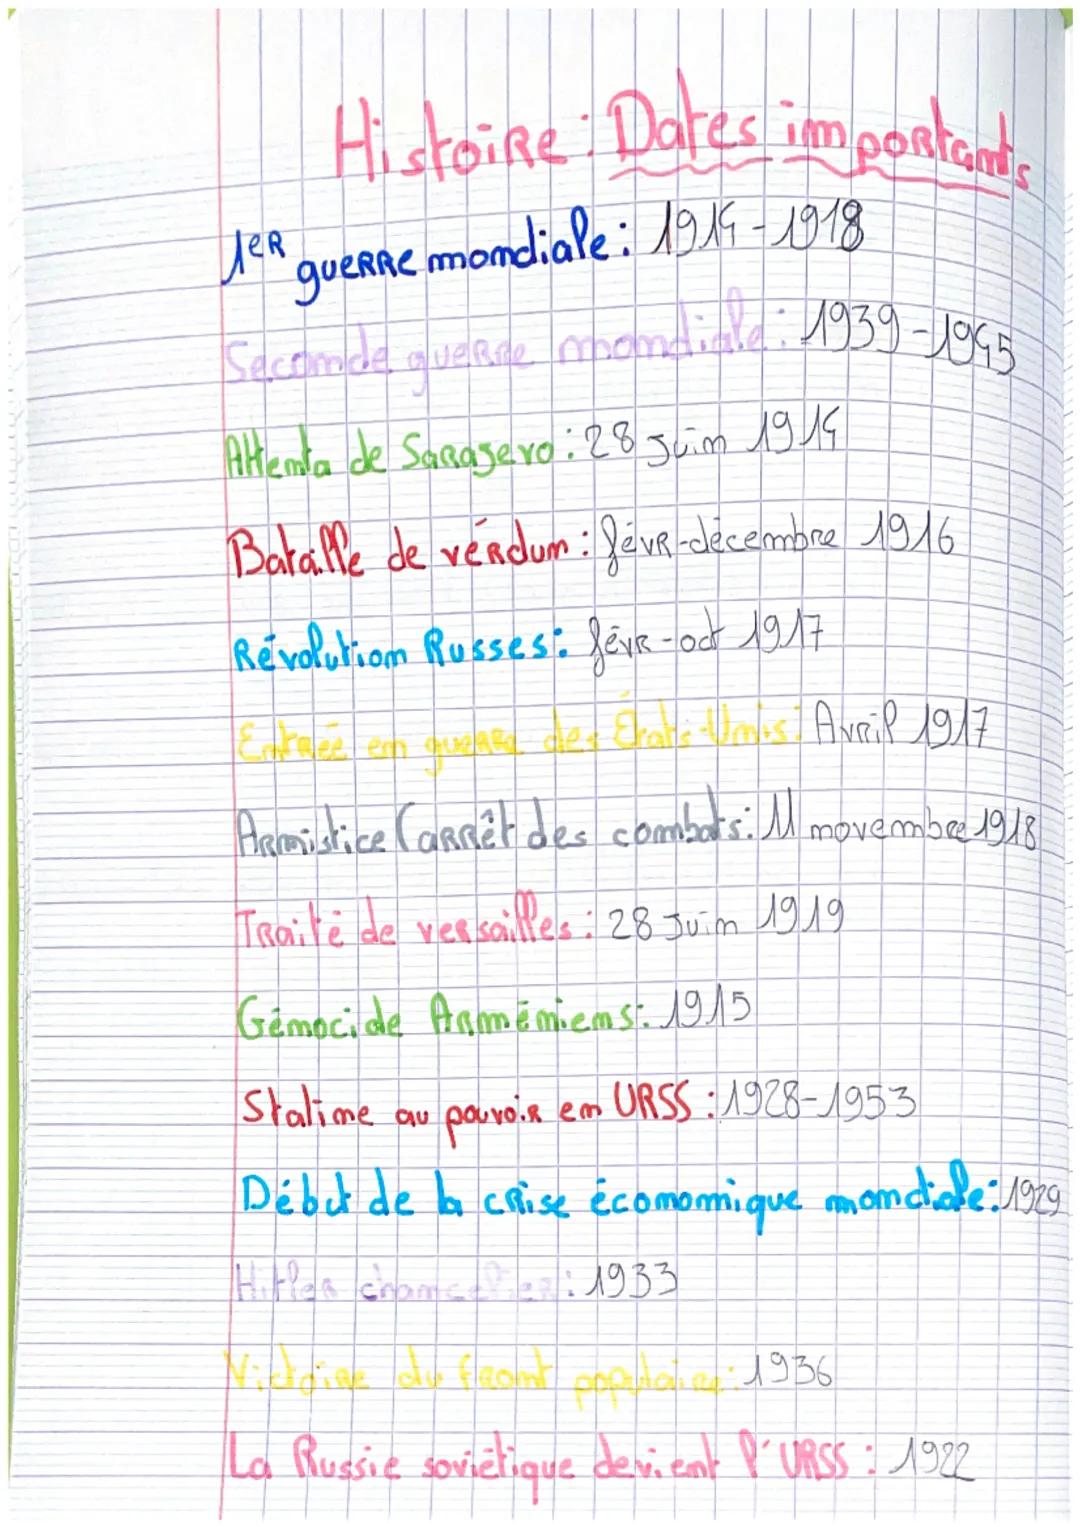 Histoire : Dates importants
1er guerre mondiale : 1914-1918
Seconde guerre mondiale : 1939-1945
Attenta de Sarajevo : 28 Juin 1914
Bataille de vérdun : févr-décembre 1916
Révolution Russes : févr-oct 1917
Entrée en guerre des États-Unis : Avril 1917
Armistice (arrêt des combats : 11 novembre 1918
Traité de versailles : 28 Juin 1919
Génocide Arméniens : 1915
Staline au pouvoir en URSS : 1928-1953
Début de la crise économique mondiale : 1929
Hitler chancelier : 1933
Victoire du front populaire : 1936
La Russie soviétique devient l'URSS : 1922